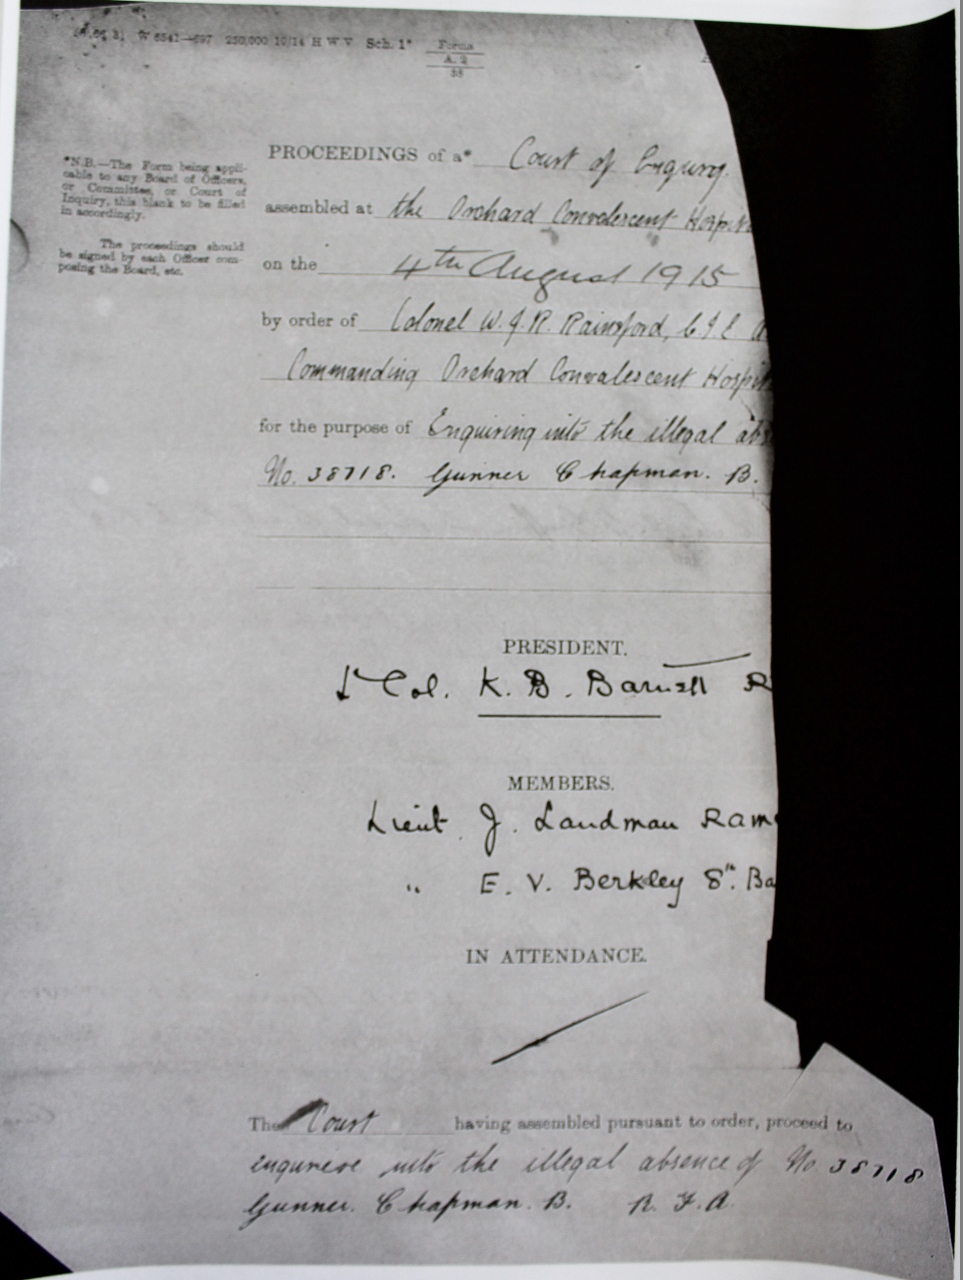 W 6541—697 250,000 10/14 H W V Sch. 1* Forms
A. 2
38
PROCEEDINGS of a* Court of Enquiry.
assembled at the Orchard Convalescent Hospit
on the 4th August 1915
by order of Colonel W. J. R. Rainsford, C I E
Commanding Orchard Convalescent Hospit
for the purpose of Enquiring into the illegal abs
No. 38718. Gunner Chapman. B.
*N.B.—The Form being appli-
cable to any Board of Officers,
or Committee, or Court of
Inquiry, this blank to be filled
in accordingly.
The proceedings should
be signed by each Officer com-
posing the Board, etc.
PRESIDENT.
Lt Col. K. B. Barnett R
MEMBERS.
Lieut J. Landman RAM
" E. V. Berkley 8th. Ba
IN ATTENDANCE.
The Court having assembled pursuant to order, proceed to
enquire into the illegal absence of No. 38718
Gunner. Chapman. B. R. F. A.